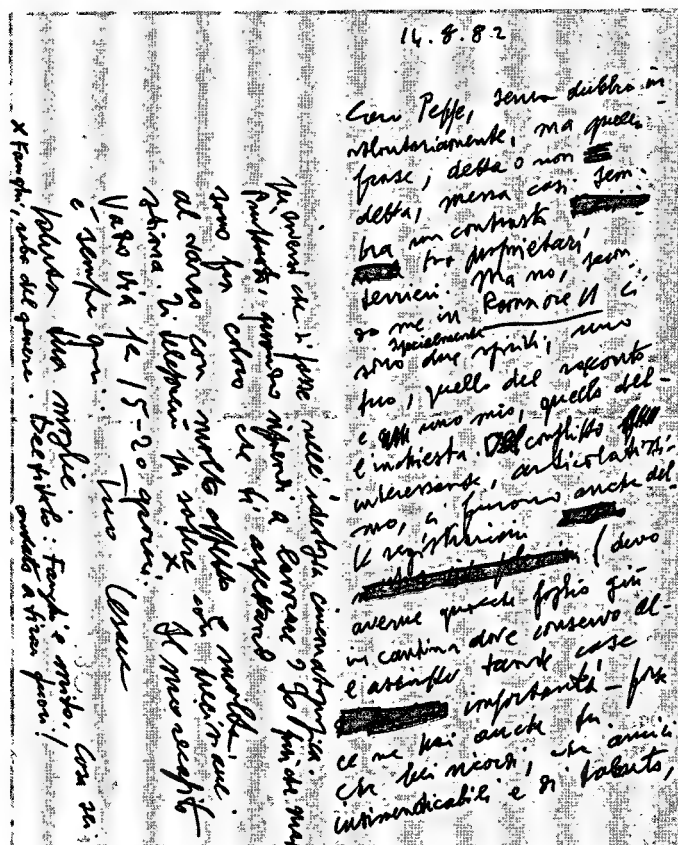 14.8.82
Caro Peppe, senza dubbio in
volontariamente, ma quella
frase, detta o non
detta, messa così sem-
bra un contrasto
tra proprietari
terrieri. Ma no, secon
do me in Roma ore 11 ci
sono specialmente due spiriti, uno
tuo, quello del racconto
e uno mio, quello del-
l'inchiesta. Del conflitto
interessante, articolatissi-
mo, ci furono anche del
le registrazioni
(devo
averne qualche foglio giù
in cantina dove conservo al-
tante cose
importanti - forse
ce ne hai anche tu
che bei ricordi, che amici
indimenticabili e di talento,
più che si fosse nell'ideologia cinematografica.
Piuttosto, quando riprendi a lavorare? Io
sono fra coloro che ti aspettano
al varco con molto affetto e molta
stima. Ti telefonerò per sapere
Vado via fra 15-20 giorni. Il mio recapito
è sempre qui. Tuo Cesare
Saluta tua moglie.
X Funghi, roba del genere. Bel titolo: Funghi e mito. Cosa sei
andato a tirar fuori!